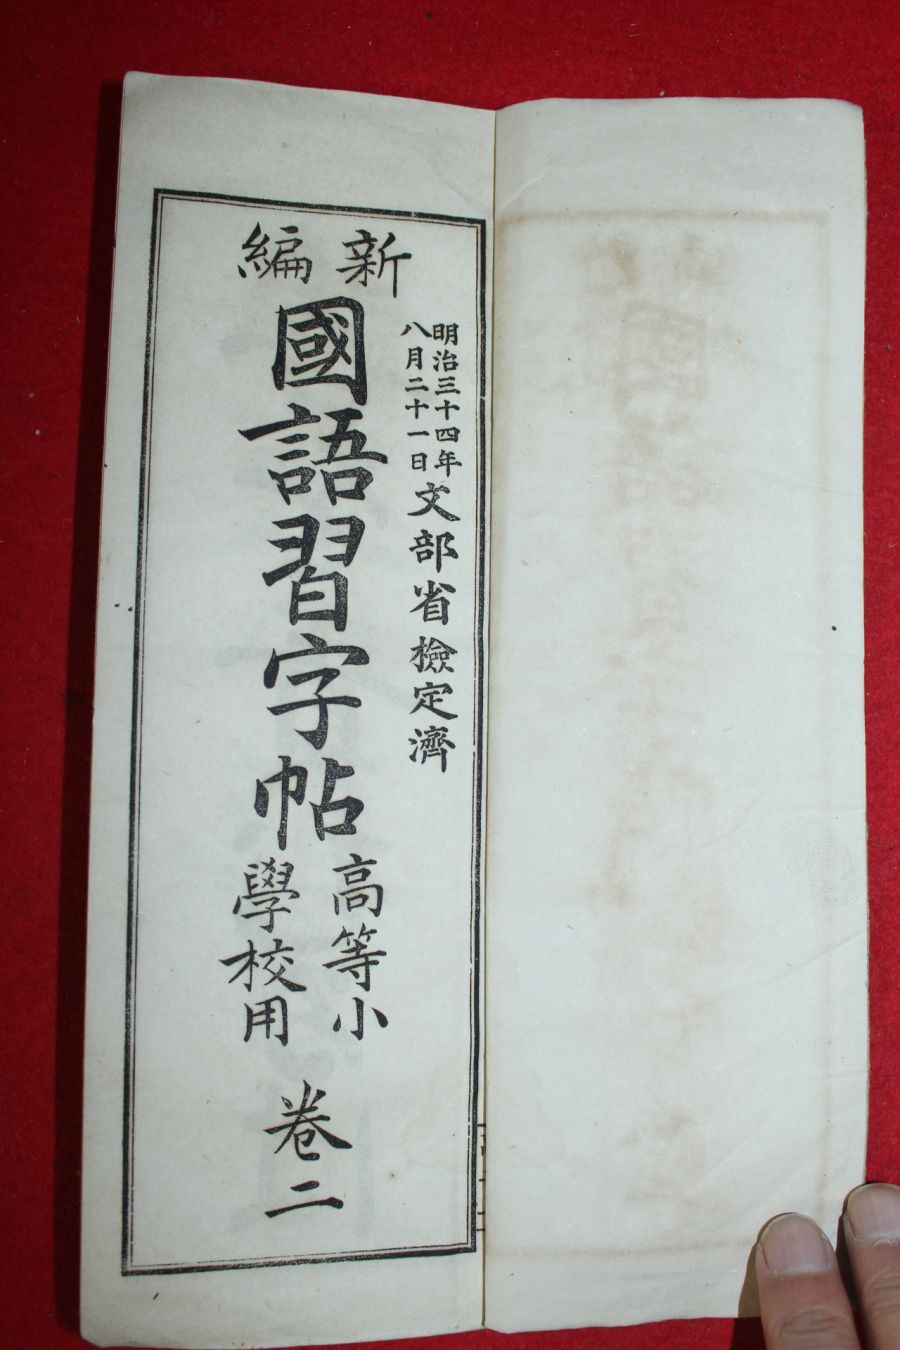 明治三十四年
八月二十一日
文部省檢定濟
新編
國語習字帖
高等小
學校用
卷二